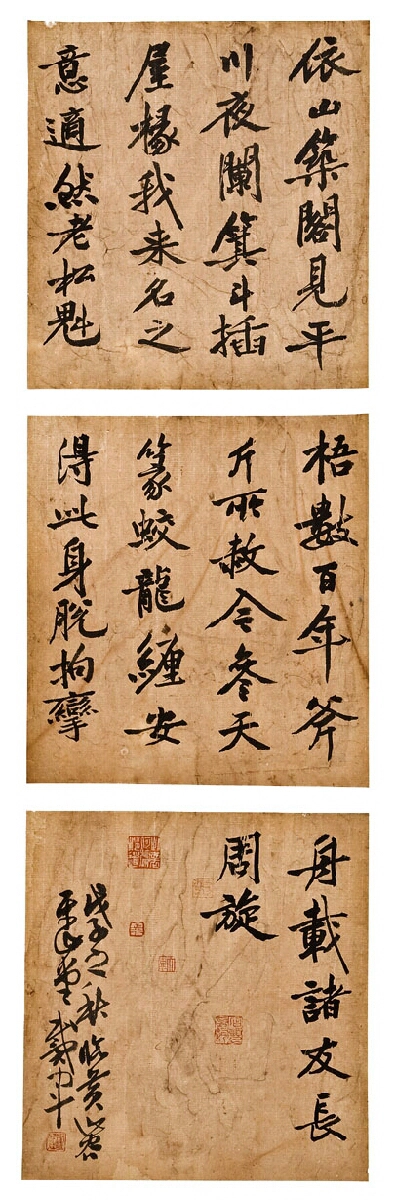 依山築閣見平
川夜闌箕斗插
屋椽我来名之
意適然老松魁
梧數百年斧
斤所赦令參天
篆蛟龍纏安
得此身脫拘攣
舟載諸友長
周旋
戊子之秋臨黃山谷